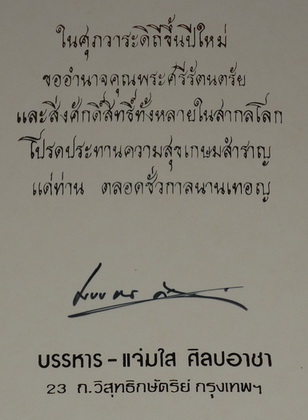 ในศุภวาระดิถีขึ้นปีใหม่
ขออำนาจคุณพระศรีรัตนตรัย
และสิ่งศักดิ์สิทธิ์ทั้งหลายในสากลโลก
โปรดประทานความสุขเกษมสำราญ
แด่ท่าน ตลอดชั่วกาลนานเทอญ
บรรหาร - แจ่มใส ศิลปอาชา
23 ถ.วิสุทธิกษัตริย์ กรุงเทพฯ